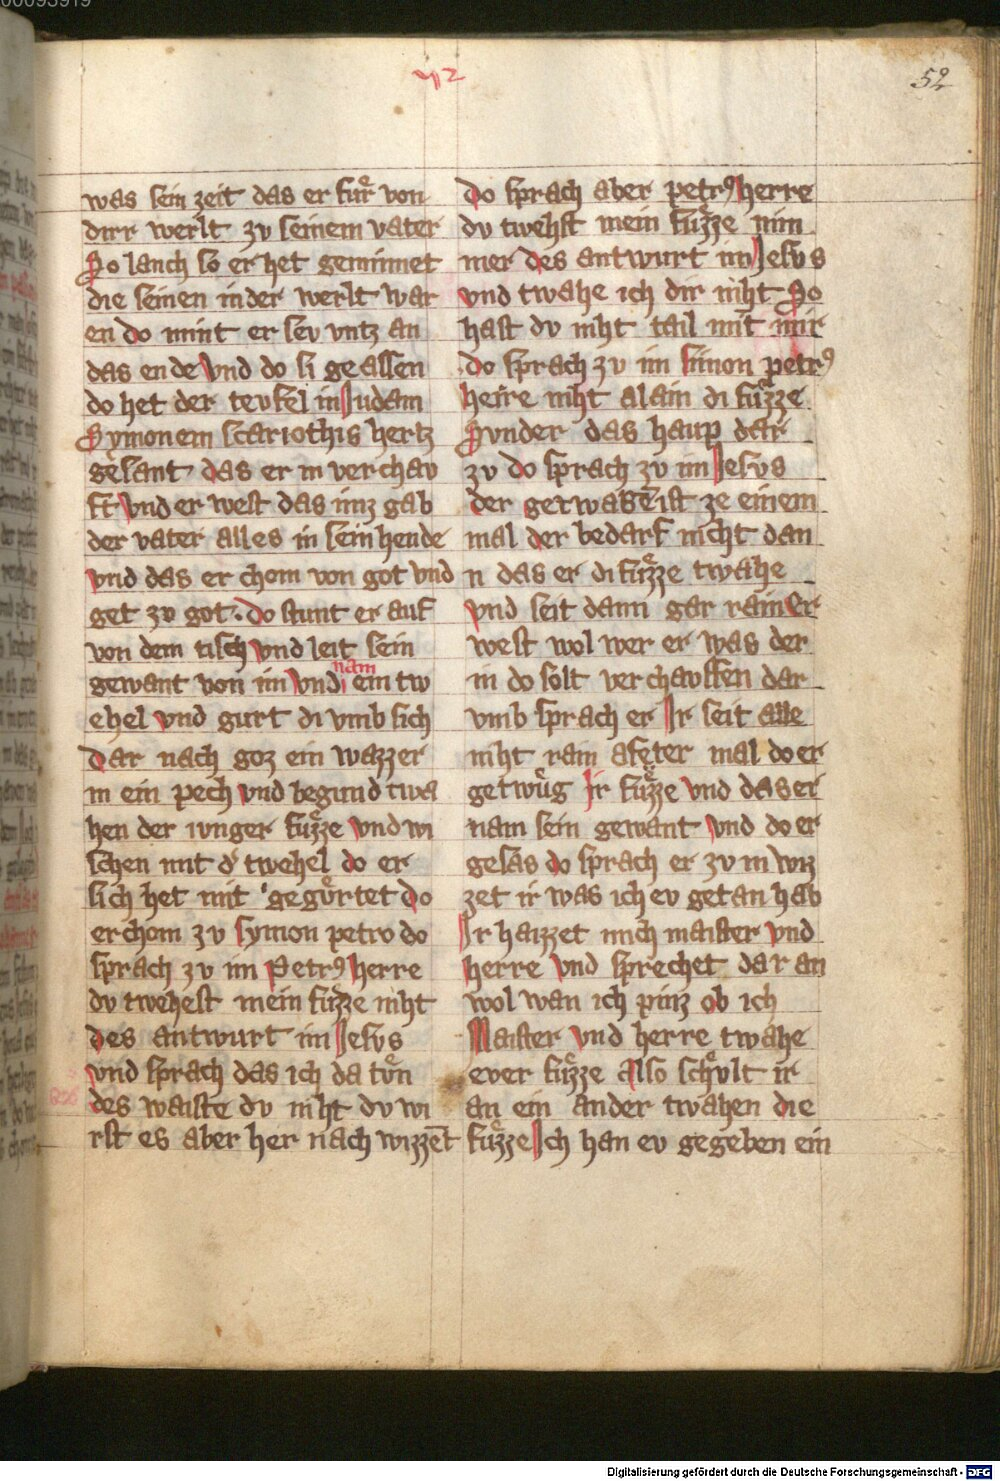 42
52
was sein zeit das er fuͤr von
dirr werlt zv seinem vater
So lanch so er het geminnet
die seinen in der werlt war
en do mint er sev vntz an
das ende vnd do si geassen
do het der tevfel in Judam
Symonem scariothis hertz
gesant das er in verchav
ft vnd er west das imz gab
der vater alles in sein hende
vnd das er chom von got vnd
get zv got. do stunt er auf
von dem tisch vnd leit sein
nam
gewant von im vnd ein tw
ehel vnd gurt di vmb sich
dar nach goz ein wazzer
in ein pech vnd begund twa
hen der iunger fuͤzze vnd wi
schen mit d' twehel do er
sich het mit geguͤrtet do
er chom zv symon petro do
sprach zv im Petrꝰ herre
dv twehest mein fuͤzze niht
des antwurt im Jesvs
vnd sprach das ich da tuͦn
des waiste dv niht dv wi
rst es aber her nach wizzēt
do sprach aber petrꝰ herre
dv twehst mein fuͤzze nim
mer des antwurt im Jesvs
vnd twahe ich dir niht So
hast dv niht tail mit mir
do sprach zv im simon petrꝰ
herre niht alain di fuͤzze
Svnder das haup dar
zv do sprach zv im Jesvs
der getwagē ist ze einem
mal der bedarf nicht dan
n das er di fuͤzze twahe
vnd seit dann gar rain Er
west wol wer er was der
in do solt verchavffen dar
vmb sprach er Ir seit alle
niht rain after mal do er
getwuͤg Ir fuͤzze vnd das er
nam sein gewant vnd do er
gesas do sprach er zv in wiz
zet ir was ich ev getan hab
Ir haizzet mich maister vnd
herre vnd sprechet dar an
wol wan ich pinz ob ich
Maister vnd herre twahe
ever fuͤzze also schvͤlt ir
an ein ander twahen die
fuͤzze Ich han ev gegeben ein
Digitalisierung gefördert durch die Deutsche Forschungsgemeinschaft - DFG